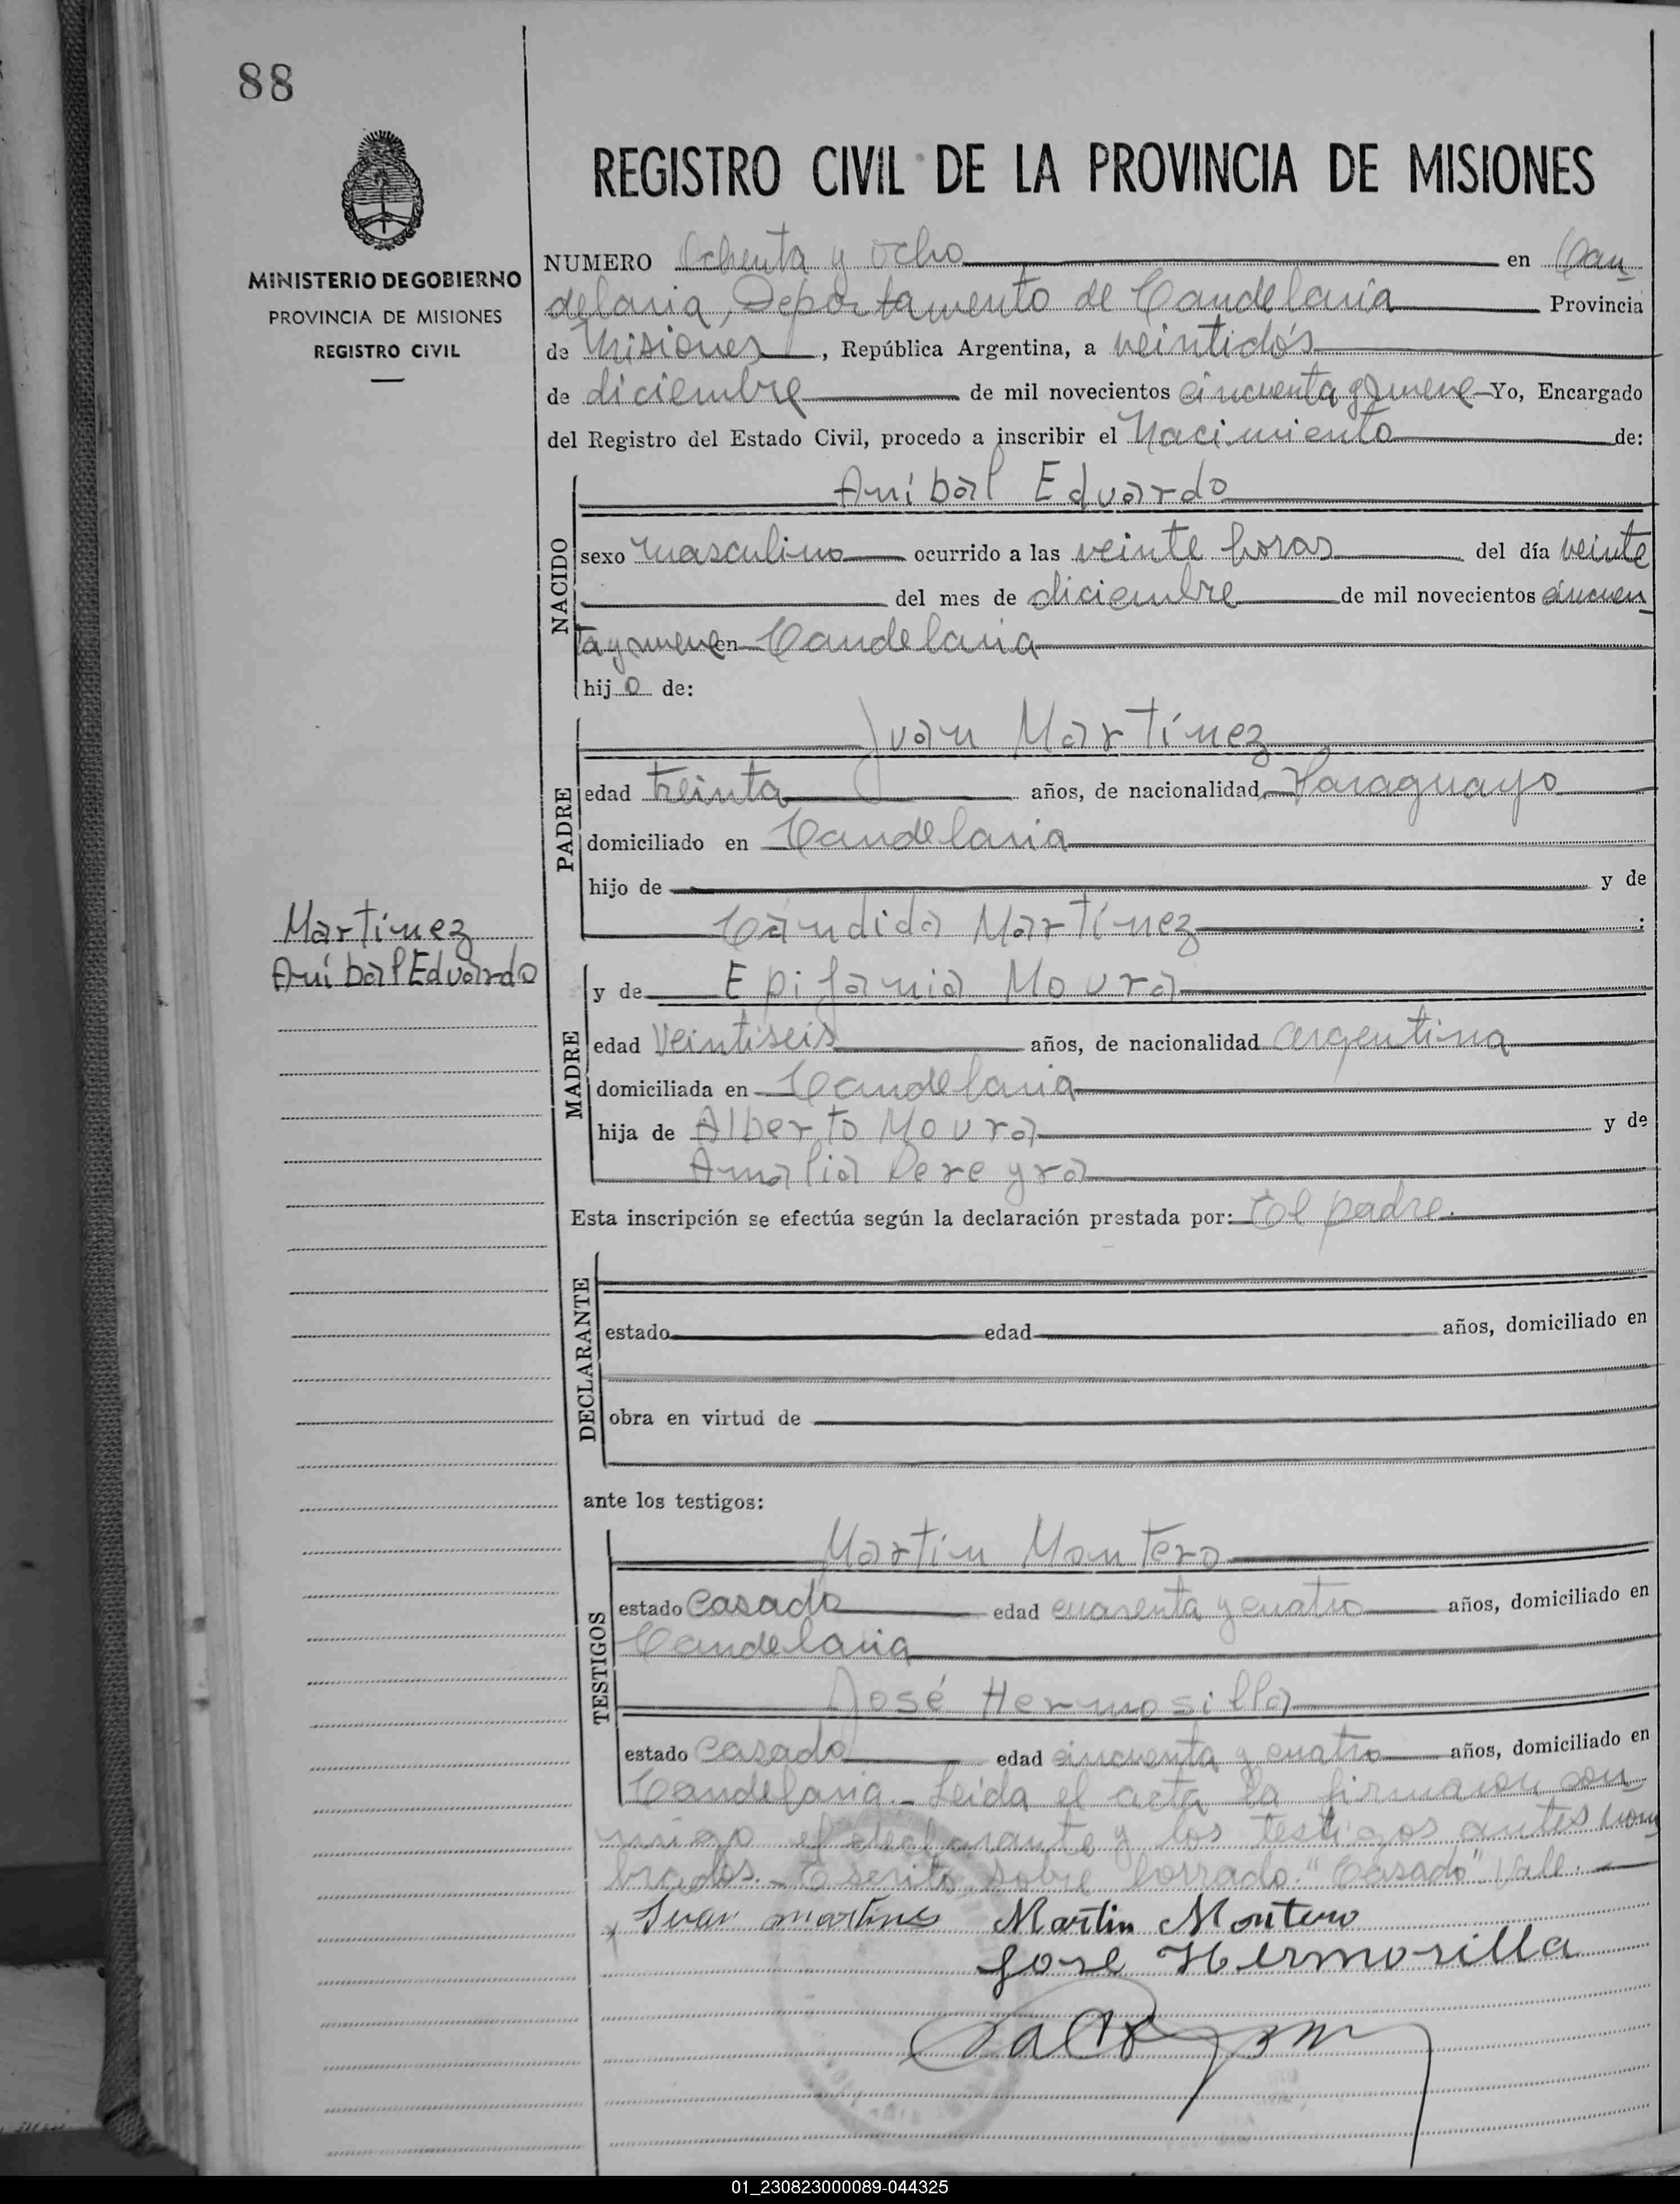 88
MINISTERIO DE GOBIERNO
PROVINCIA DE MISIONES
REGISTRO CIVIL
REGISTRO CIVIL DE LA PROVINCIA DE MISIONES
NUMERO Ochenta y ocho en Can
delaria, Departamento de Candelaria Provincia
de Misiones, República Argentina, a veintidós
de diciembre de mil novecientos cincuenta y nueve Yo, Encargado
del Registro del Estado Civil, procedo a inscribir el Nacimiento de:
NACIDO
Aníbal Eduardo
sexo masculino ocurrido a las veinte horas del día veinte
del mes de diciembre de mil novecientos cincuen
ta y nueve en Candelaria
hijo de:
PADRE
Juan Martínez
edad treinta años, de nacionalidad Paraguayo
domiciliado en Candelaria
hijo de y de
Cándida Martínez;
Martínez
Aníbal Eduardo
MADRE
y de Epifania Moura
edad Veintiseis años, de nacionalidad argentina
domiciliada en Candelaria
hija de Alberto Moura y de
Amalia Pereyra
Esta inscripción se efectúa según la declaración prestada por: El padre.
DECLARANTE
estado edad años, domiciliado en
obra en virtud de
ante los testigos:
TESTIGOS
Martín Montero
estado casado edad cuarenta y cuatro años, domiciliado en
Candelaria
José Hermosilla
estado casado edad cincuenta y cuatro años, domiciliado en
Candelaria.- Leída el acta la firmaron con
migo el declarante y los testigos antes nom
brados.- Escrito sobre borrado: "Casado" Vale.
Juan martines Martin Montero
Jose Hermosilla
01_230823000089-044325